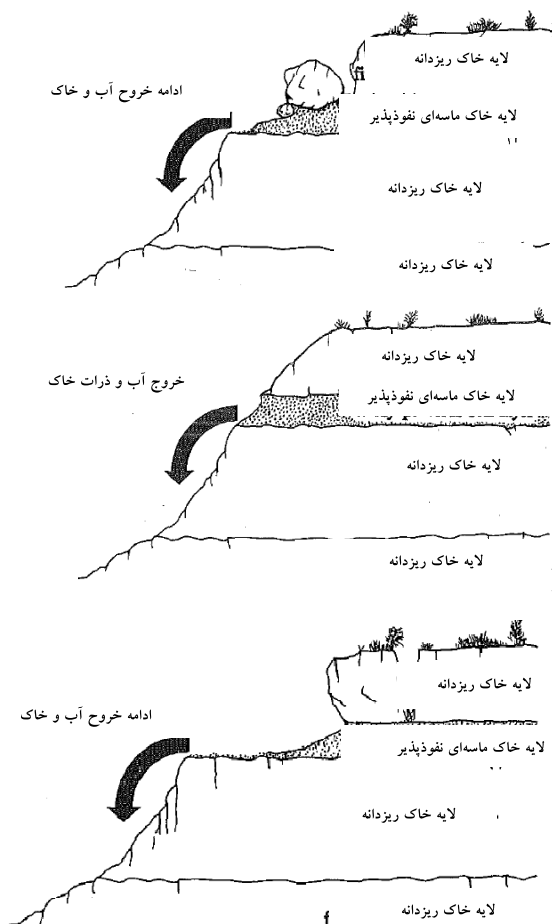 لایه خاک ریزدانه
ادامه خروح آب و خاک
لایه خاک ماسه‌ای نفوذپذیر
لایه خاک ریزدانه
لایه خاک ریزدانه
لایه خاک ریزدانه
خروج آب و ذرات خاک
لایه خاک ماسه‌ای نفوذپذیر
لایه خاک ریزدانه
لایه خاک ریزدانه
لایه خاک ریزدانه
ادامه خروح آب و خاک
لایه خاک ماسه‌ای نفوذپذیر
لایه خاک ریزدانه
لایه خاک ریزدانه